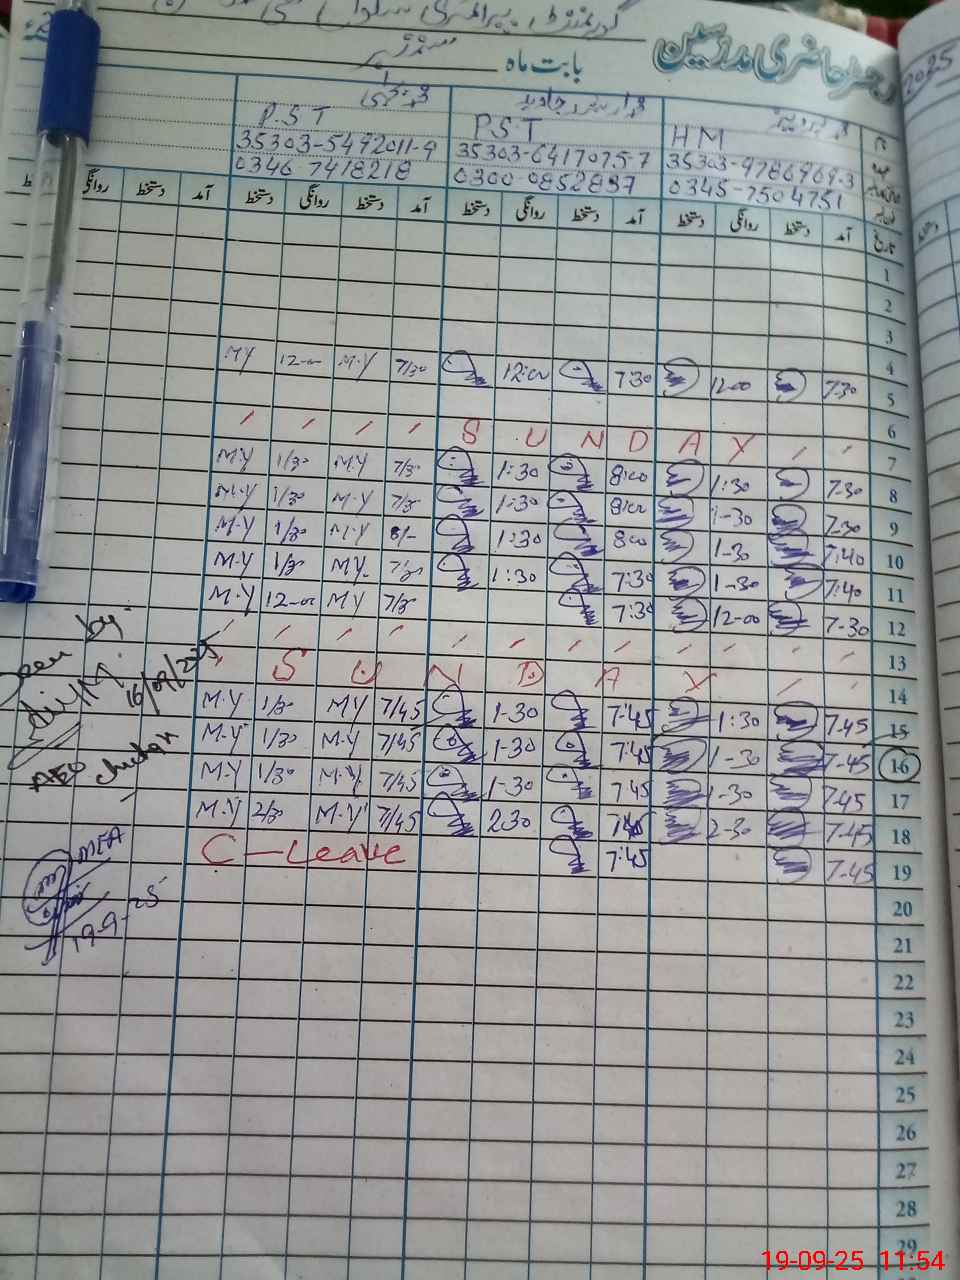 گورنمنٹ پرائمری سکول
رجسٹر حاضری مدرسین
بابت ماہ ستمبر
2025
P.S.T P.S.T HM
35303-5492011-9 35303-6417075-7 35303-9786969-3
0346-7418218 0300-0852897 0345-7504751
روانگی دستخط آمد دستخط روانگی دستخط آمد دستخط روانگی دستخط آمد دستخط روانگی دستخط آمد تاریخ
1
2
3
4
M.Y 12-00 M.Y 7/30 12:00 7:30 12-00 7-30 5
6
S U N D A Y 7
M.Y 1/30 M.Y 7/30 1:30 8:00 1:30 7-30 8
M.Y 1/30 M.Y 7/30 1:30 8:00 1-30 7-30 9
M.Y 1/30 M.Y 8/- 1:30 8:00 1-30 7:40 10
M.Y 1/30 M.Y 7/30 1:30 7:30 1-30 7:40 11
M.Y 12-00 M.Y 7/30 7:30 12-00 7-30 12
13
S U N D A Y 14
M.Y 1/30 M.Y 7/45 1-30 7:45 1:30 7.45 15
M.Y 1/30 M.Y 7/45 1-30 7:45 1-30 7-45 16
M.Y 1/30 M.Y 7/45 1-30 7.45 1-30 7.45 17
M.Y 2/30 M.Y 7/45 2.30 7:45 2-30 7-45 18
C-Leave 7:45 7-45 19
20
21
22
23
24
25
26
27
28
29
Seen by
16/09/2025
AEO
MEA
19-9-25
19-09-25 11:54